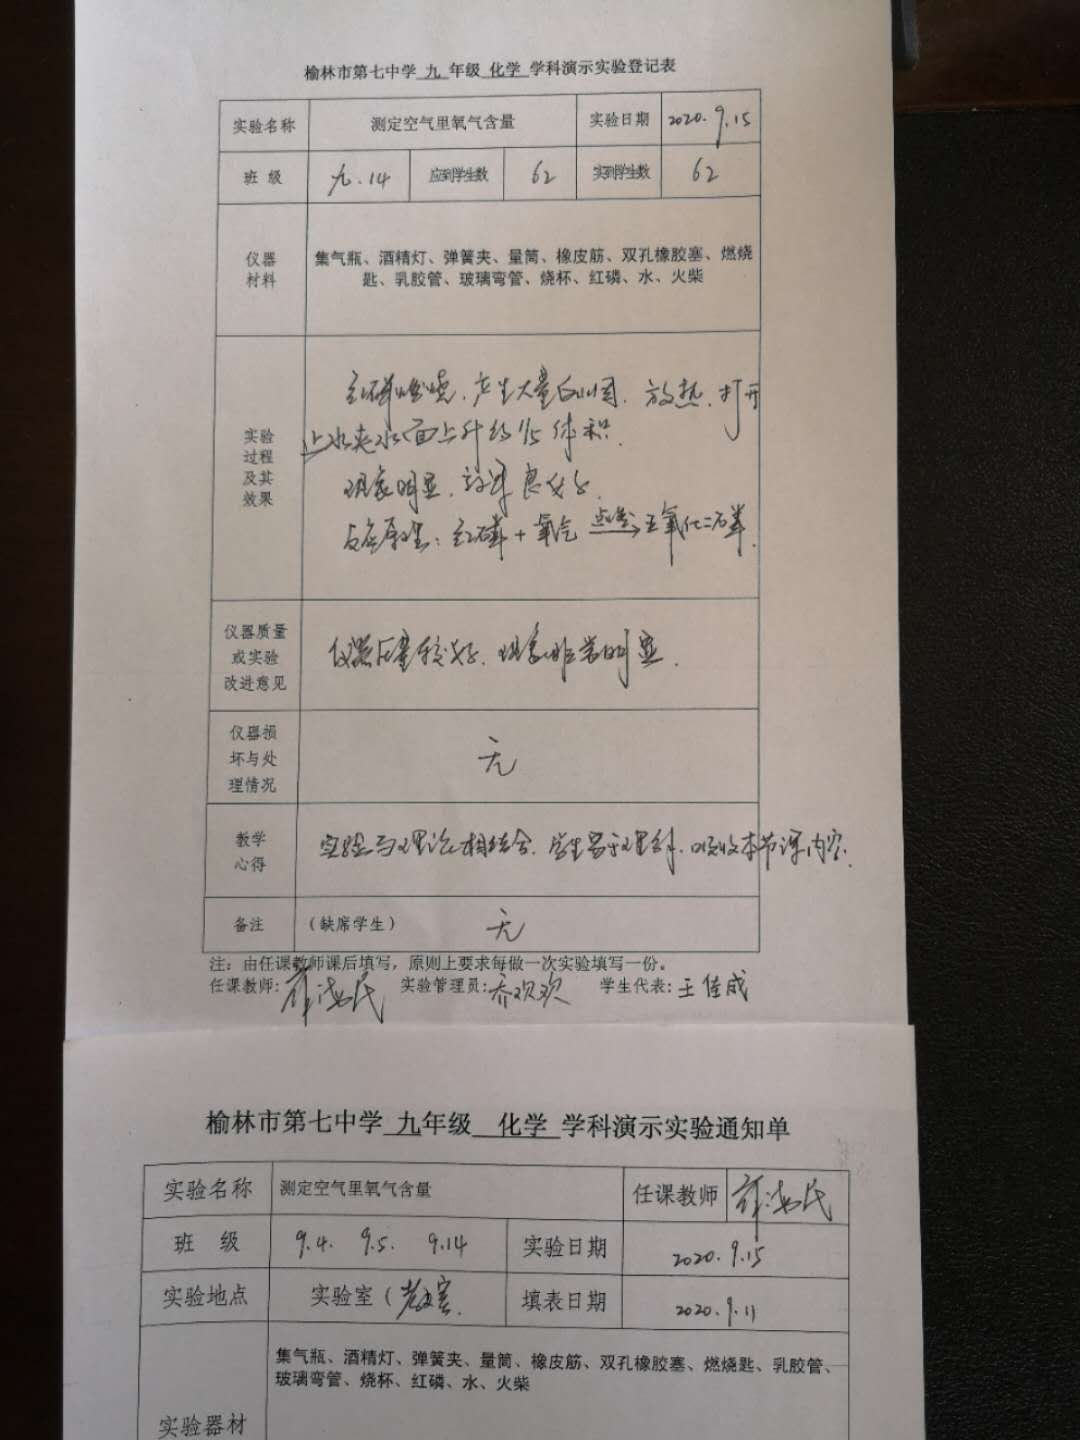 榆林市第七中学 九 年级 化学 学科演示实验登记表
实验名称 测定空气里氧气含量 实验日期 2020.9.15
班 级 九.14 应到学生数 62 实到学生数 62
仪器
材料
集气瓶、酒精灯、弹簧夹、量筒、橡皮筋、双孔橡胶塞、燃烧
匙、乳胶管、玻璃弯管、烧杯、红磷、水、火柴
实验
过程
及其
效果
红磷燃烧.产生大量白烟.放热.打开
止水夹水面上升约1/5体积.
现象明显.效果良好.
反应原理:红磷+氧气 点燃→五氧化二磷.
仪器质量
或实验
改进意见
仪器质量较好.现象非常明显.
仪器损
坏与处
理情况
无
教学
心得
实验与理论相结合.学生易于理解.吸收本节课内容.
备注 (缺席学生) 无
注:由任课教师课后填写,原则上要求每做一次实验填写一份。
任课教师: 实验管理员:乔欢欢 学生代表:王佳成
榆林市第七中学 九年级 化学 学科演示实验通知单
实验名称 测定空气里氧气含量 任课教师
班 级 9.4. 9.5. 9.14 实验日期 2020.9.15
实验地点 实验室( 教室. 填表日期 2020.9.11
实验器材
集气瓶、酒精灯、弹簧夹、量筒、橡皮筋、双孔橡胶塞、燃烧匙、乳胶管、
玻璃弯管、烧杯、红磷、水、火柴